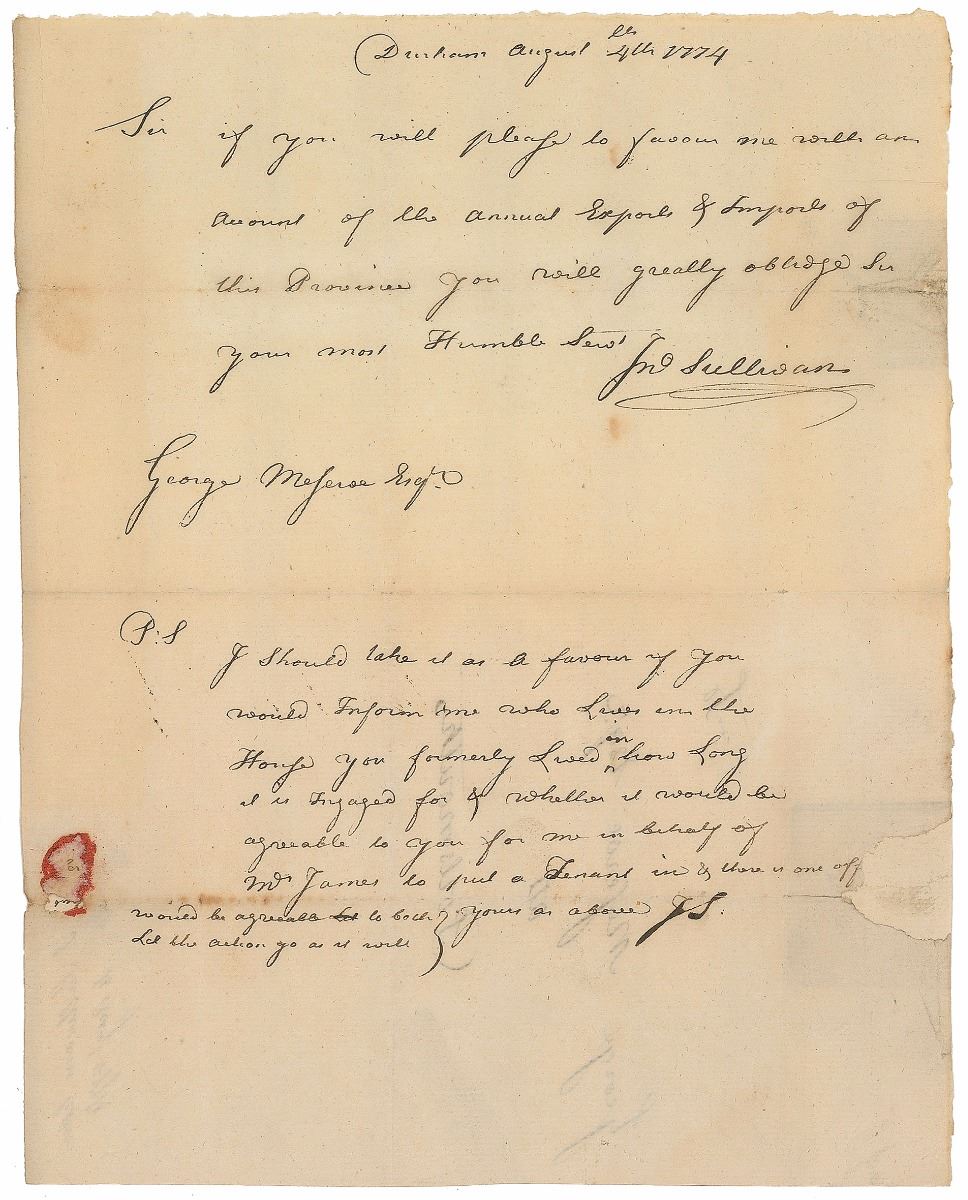 Durham August 4th 1774
Sir if you will please to favour me with an
account of the annual Exports & Imports of
this Province you will greatly oblidge Sir
your most Humble Servt Jno Sullivan
George Meserve Esqr
P:S
I Should take it as a favour if you
would Inform me who Lives in the
House you formerly Lived in how Long
it is Ingaged for & whether it would be
agreable to you for me in behalf of
Mrs James to put a Tenant in & there is one off
would be agreeable to both yours as above JS.
Let the action go as it will